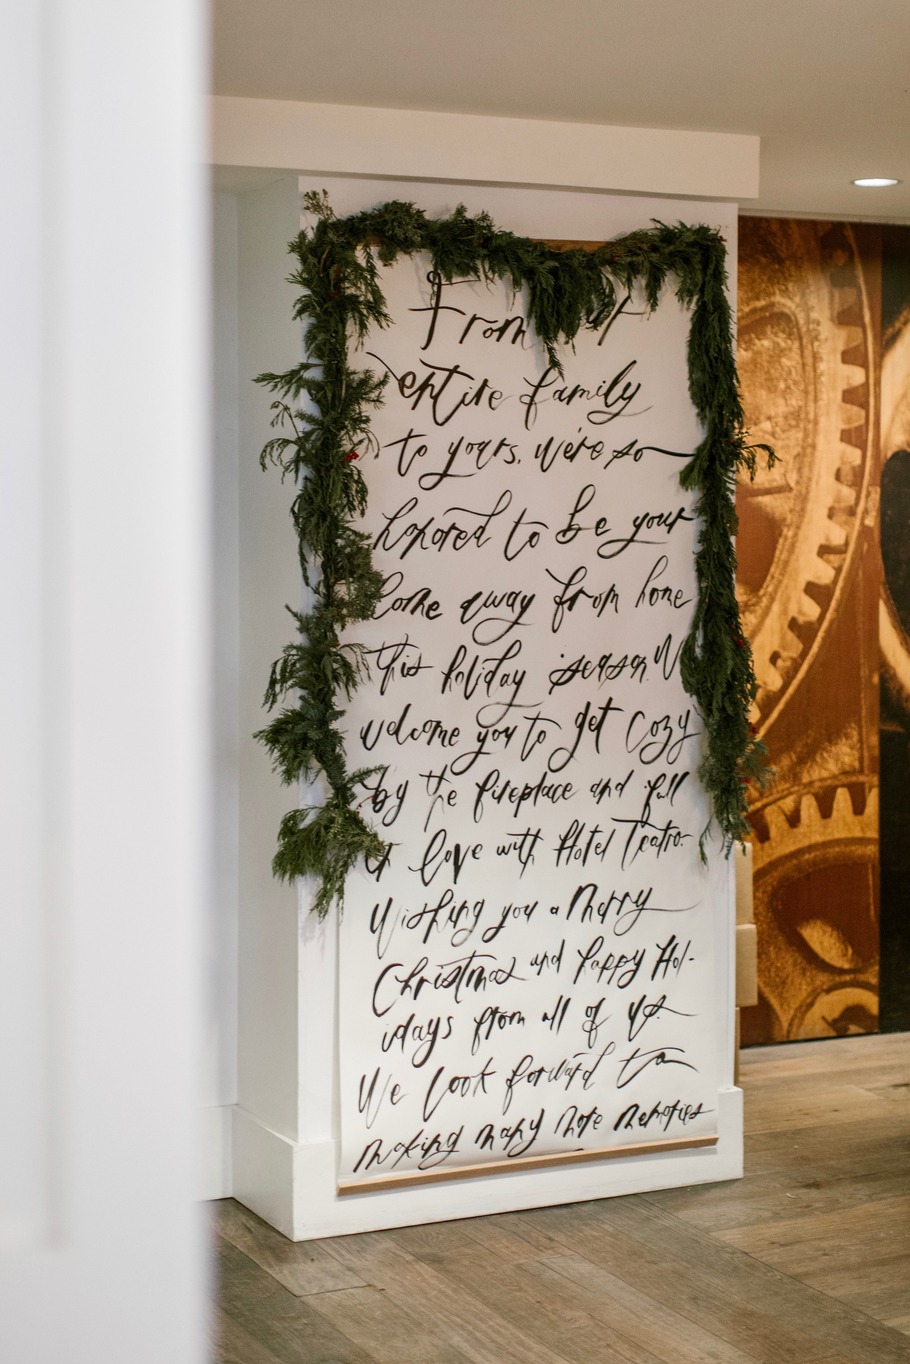 From our
entire family
to yours, we're so
honored to be your
home away from home
this holiday season. W
welcome you to get cozy
by the fireplace and fall
in love with Hotel Teatro.
Wishing you a Merry
Christmas and Happy Hol-
idays from all of us.
We look forward to
making many more memories